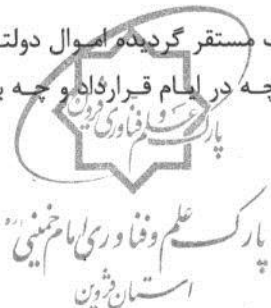 مستقر گردیده اموال دولت
چه در ایام قرارداد و چه
پارک علم و فناوری قزوین
پارک علم و فناوری امام خمینی ره
استان قزوین